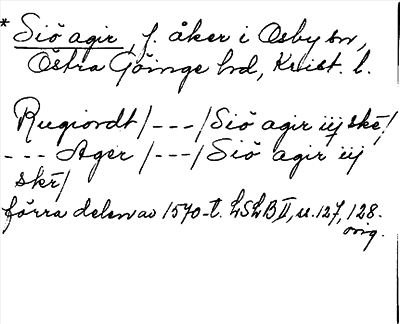 * Siö agir, f. åker i Osby sn,
Östra Göinge hd, Krist. l.
Rugiordt /---/ Siö agir iij skē/
--- Ager /---/ Siö agir iij
skē/
förra delen av 1570-t. LSLB II, s. 127, 128.
orig.